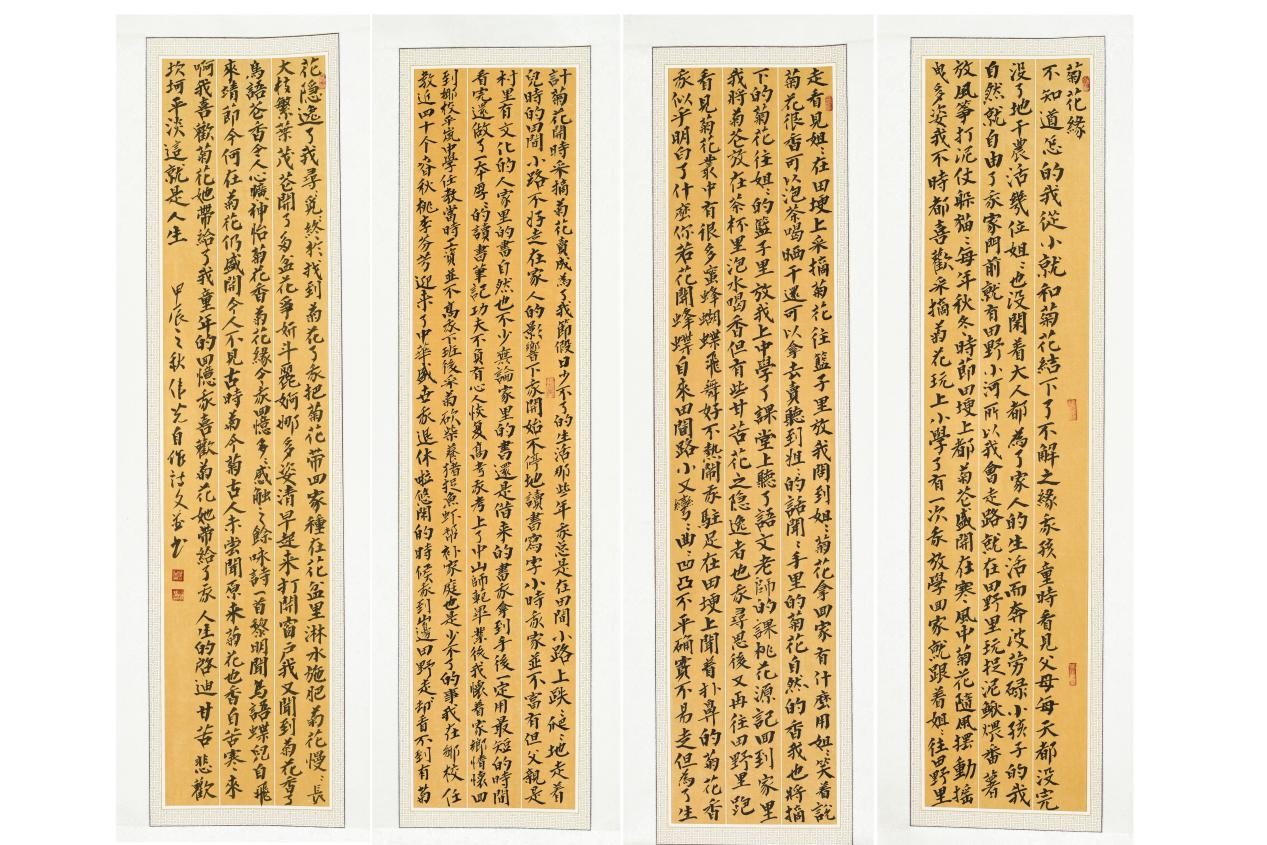 菊花緣
不知道怎的我從小就和菊花結下了不解之緣家孩童時看見父母每天都沒完
沒了地干農活幾位姐〻也沒閑着大人都為了家人的生活而奔波勞碌小孩子的我
自然就自由了家家門前就有田野小河所以我會走路就在田野里玩捉泥鰍煨番薯
放風箏打泥仗躲貓〻每年秋冬時節田埂上都菊花盛開在寒風中菊花隨風擺動搖
曳多姿我不時都喜歡采摘菊花玩上小學了有一次家放學回家就跟着姐〻往田野里
走看見姐〻在田埂上采摘菊花往籃子里放我問到姐〻菊花拿回家有什麼用姐〻笑着說
菊花很香可以泡茶喝晒干還可以拿去賣聽到姐〻的話聞〻手里的菊花自然的香我也將摘
下的菊花往姐〻的籃子里放我上中學了課堂上聽了語文老師的課桃花源記回到家里
我將菊花放在茶杯里泡水喝香但有些甘苦花之隐逸者也家尋思後又再往田野里跑
看見菊花叢中有很多蜜蜂蝴蝶飛舞好不熱鬧家駐足在田埂上聞着扑鼻的菊花香
家似乎明白了什麼你若花開蜂蝶自來田間路小又彎〻曲〻凹凸不平确實不易走但為了生
計菊花開時采摘菊花賣成為了我節假日少不了的生活那些年家總是在田間小路上跌〻爬〻地走着
兒時的田間小路不好走在家人的影響下家開始不停地讀書寫字小時家家並不富有但父親是
村里有文化的人家里的書自然也不少無論家里的書還是借来的書家拿到手後一定用最短的時間
看完還做了一本厚〻的讀書筆記功夫不負有心人恢复高考家考上了中山師範畢業後我懷着家鄉情懷回
到鄉校平嵐中學任教當時工資並不高家下班後采菊砍柴養猪捉魚虾帮补家庭也是少不了的事我在鄉校任
教近四十个春秋桃李芬芳迎来了中華盛世家退休啦悠閑的時候家到岗邊田野走却看不到有菊
花隐逸了我尋覓終於找到菊花了家把菊花带回家種在花盆里淋水施肥菊花慢〻長
大枝繁葉茂花開了每盆花爭妍斗麗婀娜多姿清早起来打開窗户我又聞到菊花香了
鳥語花香令人心曠神怡菊花香菊花緣令家回憶多〻感触〻餘咏詩一首黎明聞鳥語蝶兒自飛
來靖節今何在菊花仍盛開今人不見古時菊今菊古人未尝聞原来菊花也香自苦寒来
啊我喜歡菊花她帶給了我童年的回憶家喜歡菊花她帶給了家人生的啓迪甘苦悲歡
坎坷平淡這就是人生
甲辰之秋偉光自作詩文並書